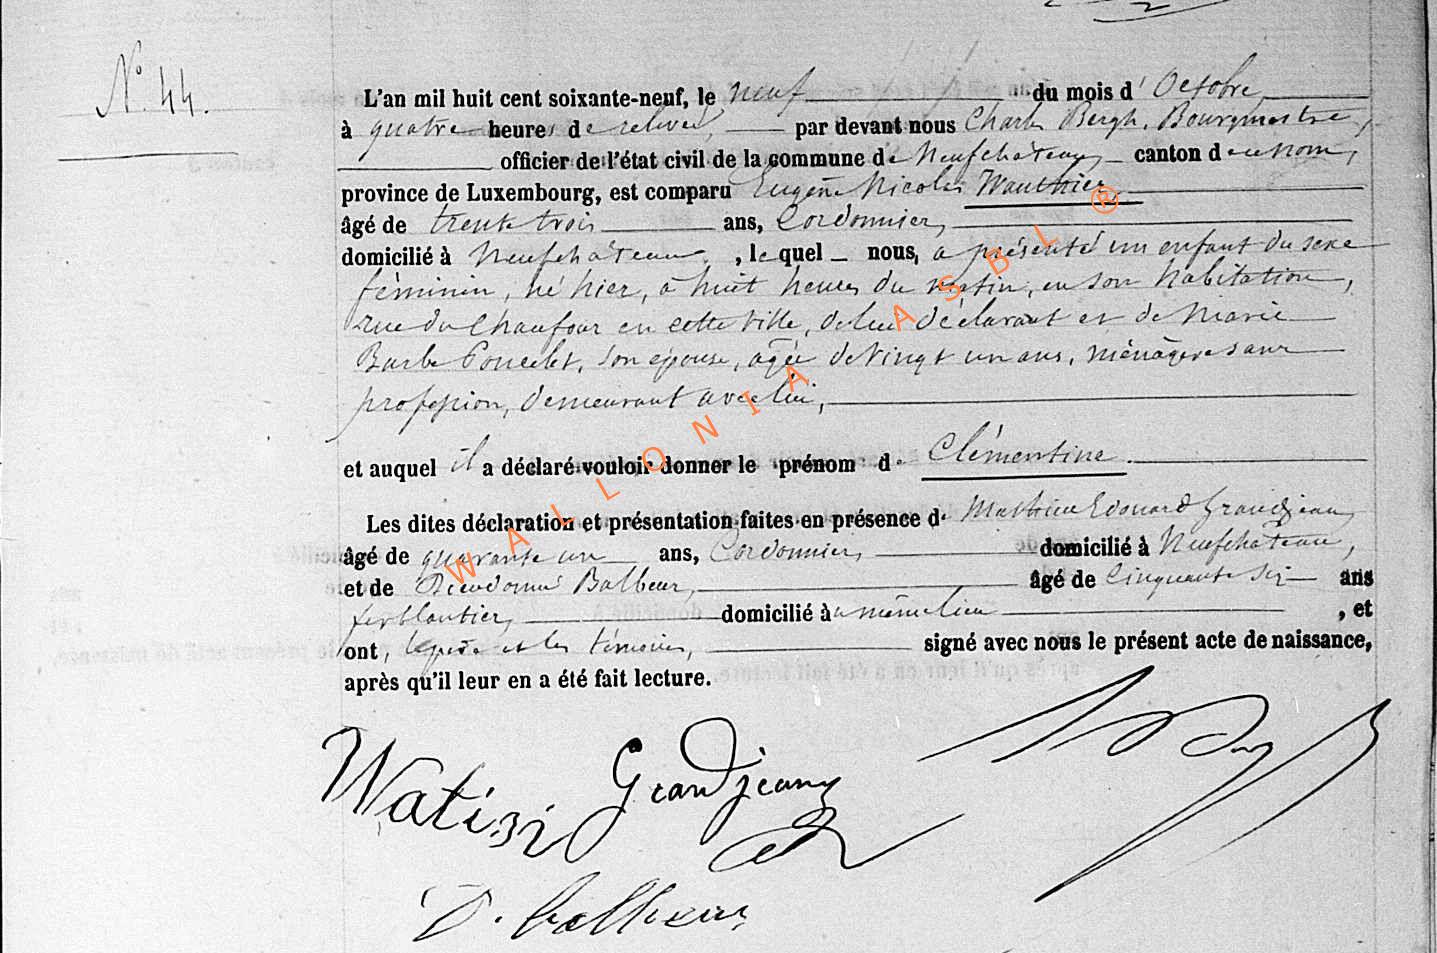 N° 44.
L'an mil huit cent soixante-neuf, le neuf du mois d'Octobre
à quatre heures de relevée, par devant nous Charles Bergh, Bourgmestre,
officier de l'état civil de la commune de Neufchâteau, canton du nom,
province de Luxembourg, est comparu Eugène Nicolas Wauthier
âgé de trente trois ans, Cordonnier,
domicilié à Neufchâteau, lequel nous, a présenté un enfant du sexe
féminin, né hier, à huit heures du matin, en son habitation,
rue du Chaufour en cette ville, de lui déclarant et de Marie
Barbe Poncelet, son épouse, agée de vingt un ans, ménagère sans
profession, demeurant avec lui,
et auquel il a déclaré vouloir donner le prénom de Clémentine.
Les dites déclaration et présentation faites en présence de Mathieu Edouard Grandjean
âgé de quarante un ans, Cordonnier, domicilié à Neufchâteau,
et de Dieudonné Balbeur, âgé de Cinquante six ans
ferblantier, domicilié à même lieu, et
ont, le père et les témoins, signé avec nous le présent acte de naissance,
après qu'il leur en a été fait lecture.
Grandjean
D. Balbeur
WALLONIA ASBL ®